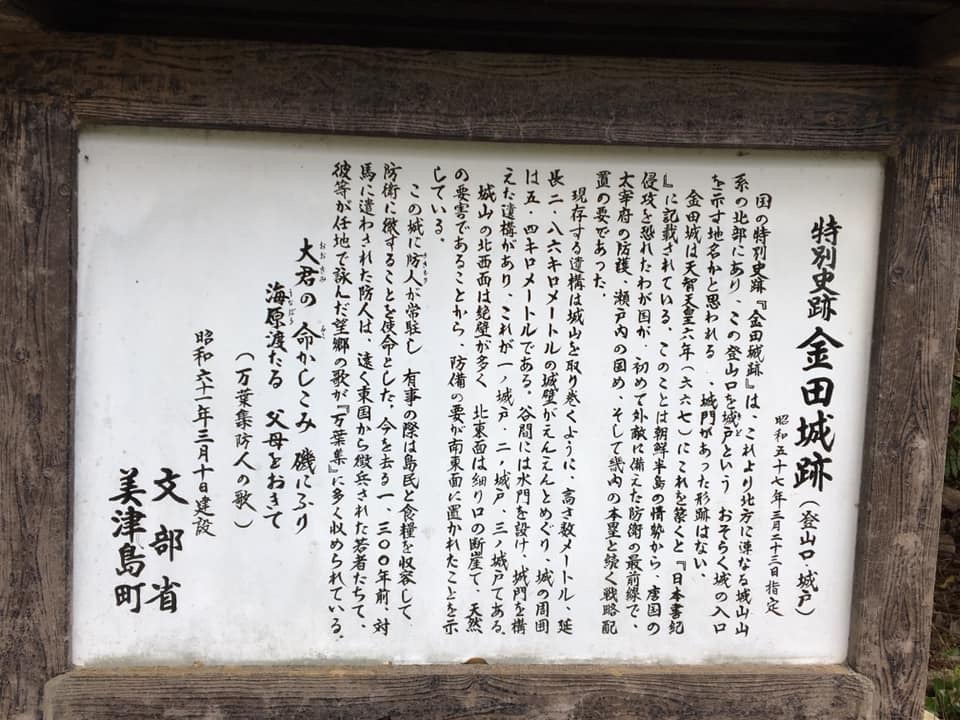 特別史跡 金田城跡（登山口・城戸）
昭和五十七年三月二十三日指定
国の特別史跡『金田城跡』は、これより北方に連なる城山山
系の北部にあり、この登山口を城戸という、おそらく城の入口
を示す地名かと思われる、、城門があった形跡はない、
金田城は天智天皇六年（六六七）にこれを築くと『日本書紀
』に記載されている、このことは朝鮮半島の情勢から、唐国の
侵攻を恐れたわが国が、初めて外敵に備えた防衛の最前線で、
太宰府の防護、瀬戸内の固め、そして畿内の本塁と続く戦略配
置の要であった、
現存する遺構は城山を取り巻くように、高さ数メートル、延
長二・八六キロメートルの城壁がえんえんとめぐり、城の周囲
は五・四キロメートルである。谷間には水門を設け、城門を構
えた遺構があり、これが一ノ城戸・二ノ城戸、三ノ城戸である
城山の北西面は絶壁が多く、北東面は細り口の断崖て、天然
の要害であることから、防備の要が南東面に置かれたことを示
している。
この城に防人が常駐し、有事の際は島民と食糧を収容して
さきもり
防衛に徹することを使命とした、今を去る一、三〇〇年前、対
馬に遣わされた防人は、遠く東国から徴兵された若者たちて、
彼等が任地で詠んだ望郷の歌が『万葉集』に多く収められている、
大君の 命かしこみ 磯にふり
おおきみ みこと
海原渡たる 父母をおきて
うなばら
（万葉集防人の歌）
昭和六十一年三月十日建設
文部省
美津島町